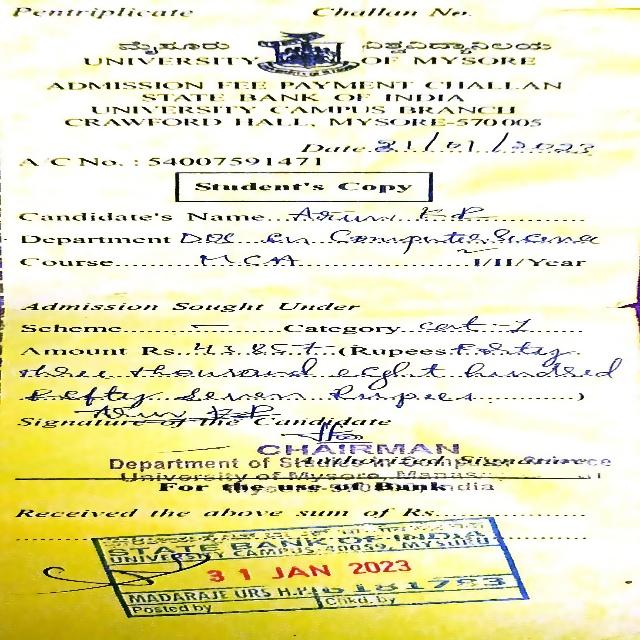 Pentriplicate Challan No.
ಮೈಸೂರು ವಿಶ್ವವಿದ್ಯಾನಿಲಯ
UNIVERSITY OF MYSORE
ADMISSION FEE PAYMENT CHALLAN
STATE BANK OF INDIA
UNIVERSITY CAMPUS BRANCH
CRAWFORD HALL, MYSORE-570005
Date 31/01/2023
A/C No. : 54007591471
Student's Copy
Candidate's Name Arun K P
Department DOS in Computer Science
Course MCA I/II/Year
Admission Sought Under
Scheme — Category Cat-1
Amount Rs. 43,857 (Rupees Forty
three thousand eight hundred
Fifty Seven Rupees )
Arun K P
Signature of the Candidate
CHAIRMAN
Department of Studies in Computer Science
Authorised Signature
University of Mysore,
For the use of Bank
India
Received the above sum of Rs.
STATE BANK OF INDIA
UNIVERSITY CAMPUS 40059, MYSURU
31 JAN 2023
MADARAJE URS H.P
Posted by Chkd. by